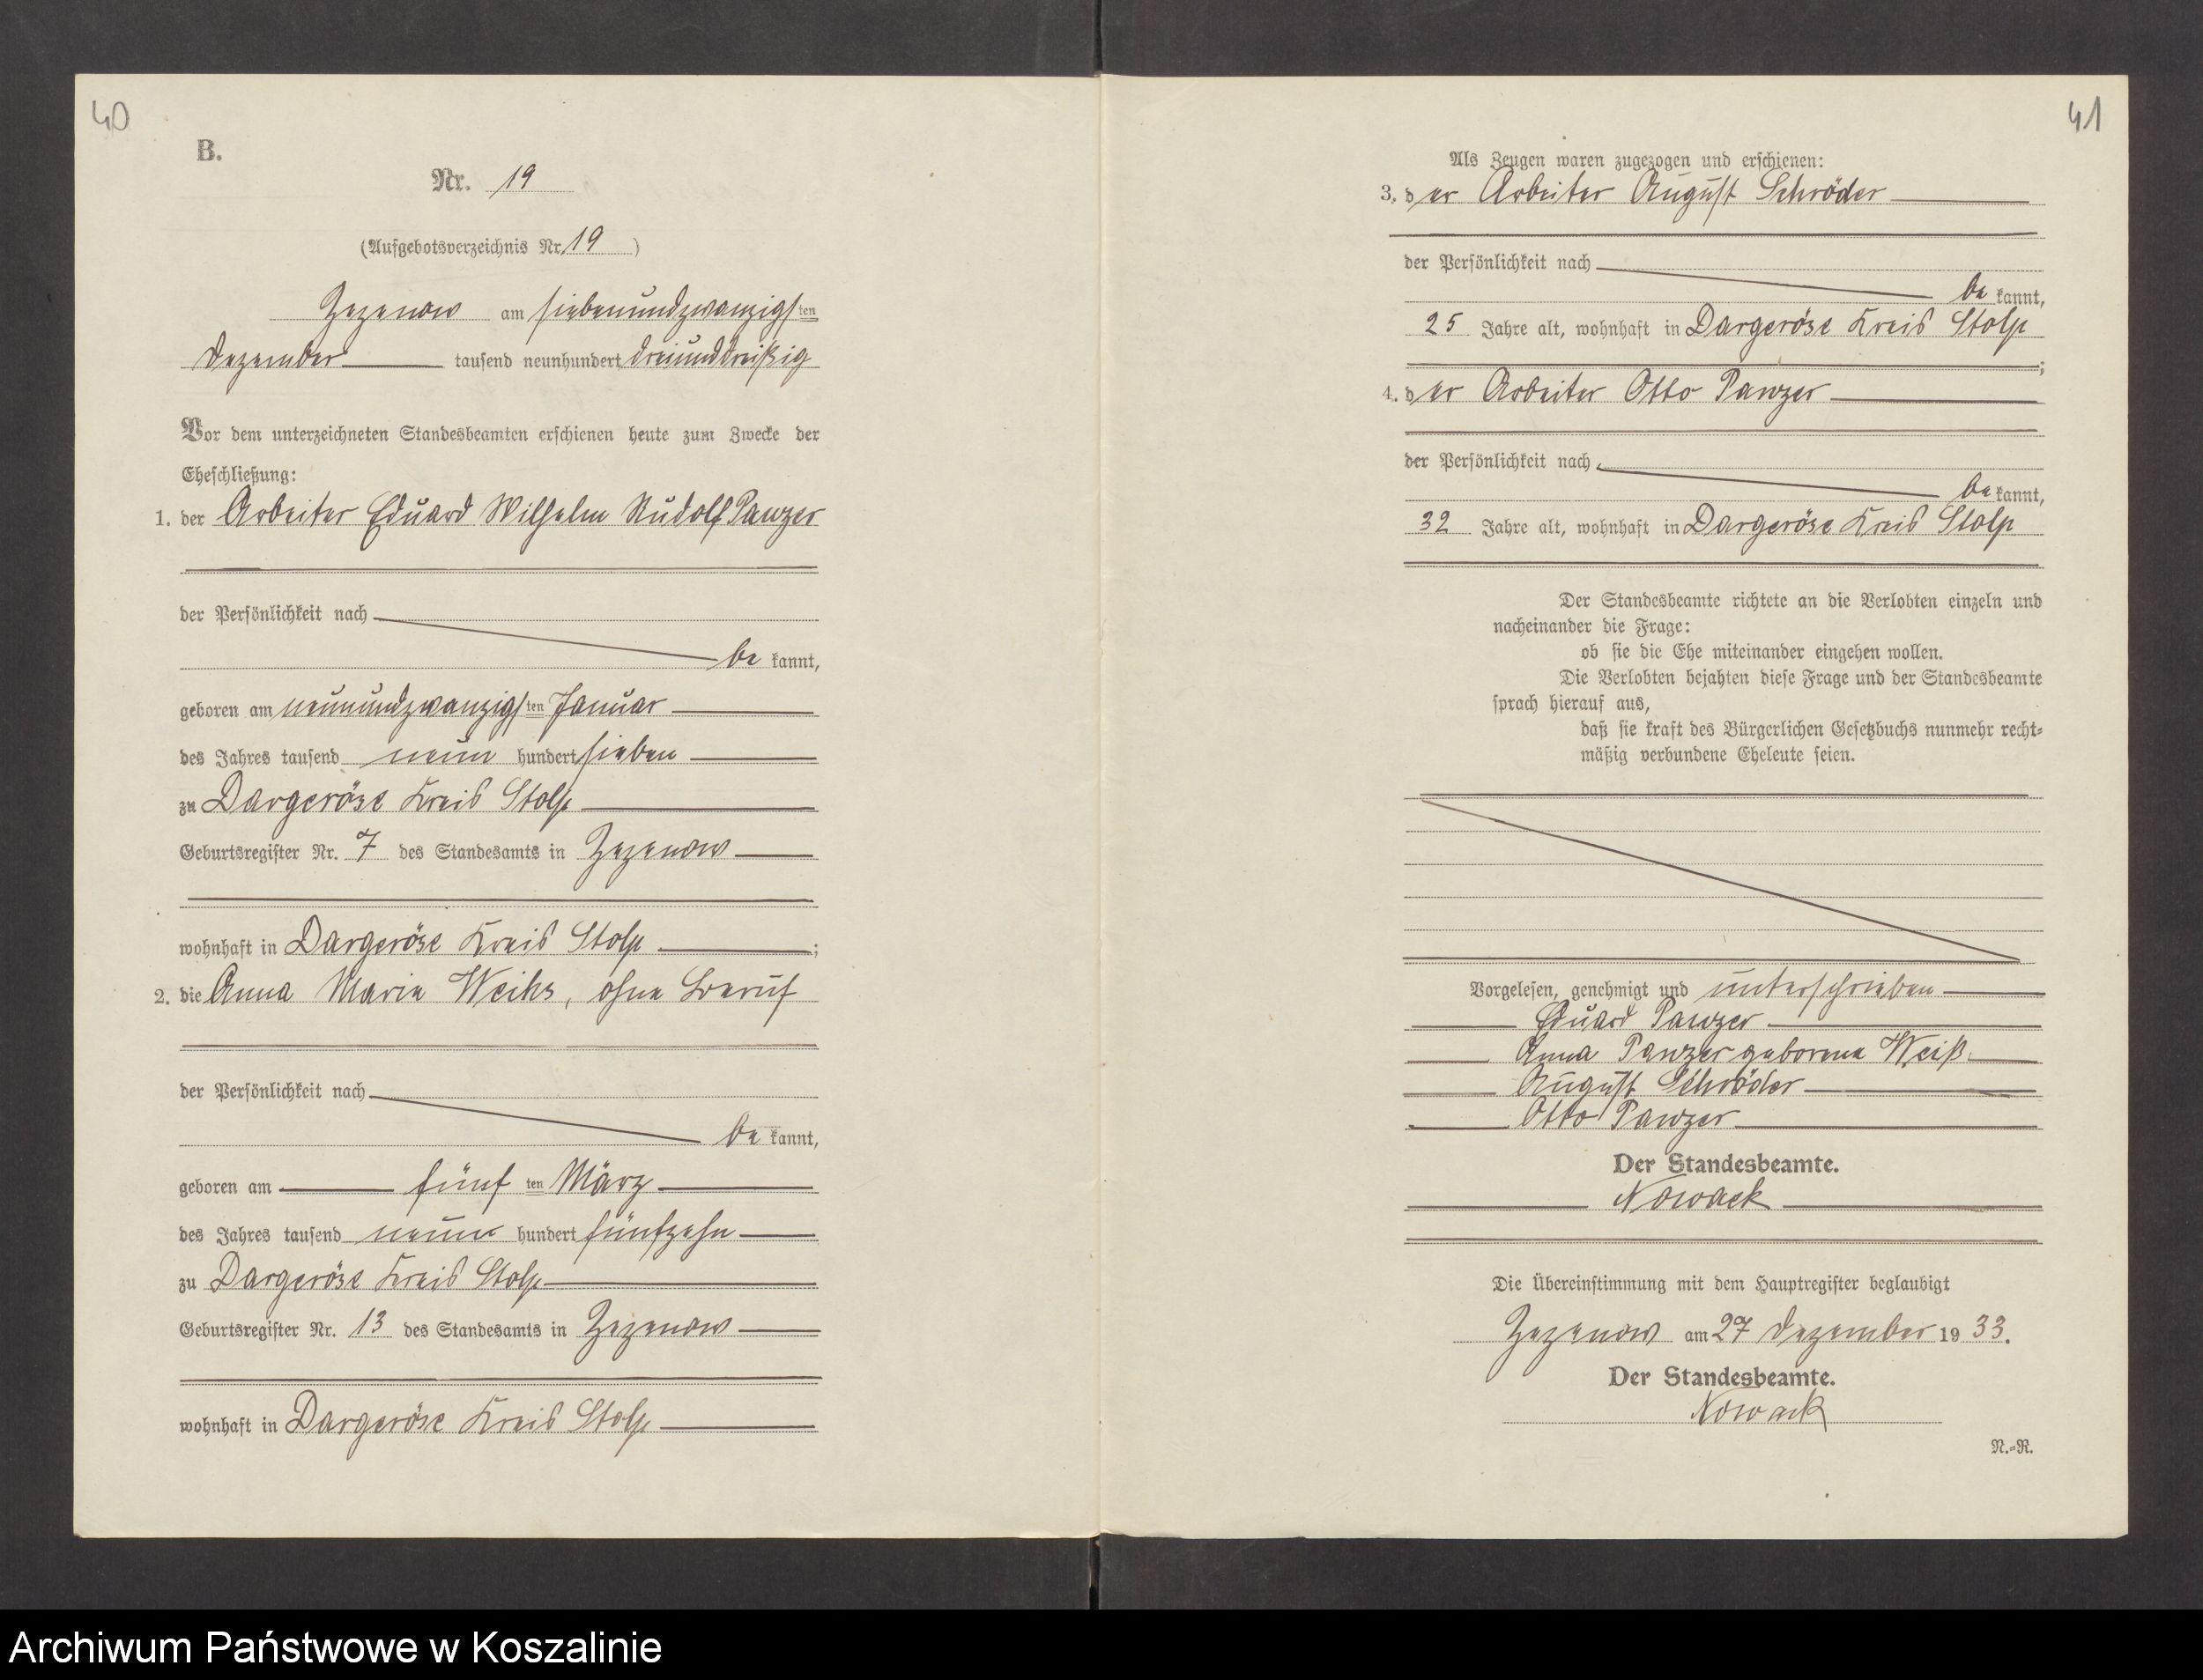 40
B.
Nr. 19
(Aufgebotsverzeichnis Nr. 19)
Zezenow am siebenundzwanzigsten
Dezember tausend neunhundert dreiunddreißig
Vor dem unterzeichneten Standesbeamten erschienen heute zum Zwecke der
Eheschließung:
1. der Arbeiter Eduard Wilhelm Rudolf Panzer
der Persönlichkeit nach
be kannt,
geboren am neunundzwanzigsten Januar
des Jahres tausend neun hundert sieben
zu Dargeröse Kreis Stolp
Geburtsregister Nr. 7 des Standesamts in Zezenow
wohnhaft in Dargeröse Kreis Stolp;
2. die Anna Marie Weihs, ohne Beruf
der Persönlichkeit nach
be kannt,
geboren am fünf ten März
des Jahres tausend neun hundert fünfzehn
zu Dargeröse Kreis Stolp
Geburtsregister Nr. 13 des Standesamts in Zezenow
wohnhaft in Dargeröse Kreis Stolp
41
Als Zeugen waren zugezogen und erschienen:
3. der Arbeiter August Schröder
der Persönlichkeit nach
be kannt,
25 Jahre alt, wohnhaft in Dargeröse Kreis Stolp
;
4. der Arbeiter Otto Panzer
der Persönlichkeit nach
be kannt,
32 Jahre alt, wohnhaft in Dargeröse Kreis Stolp
Der Standesbeamte richtete an die Verlobten einzeln und
nacheinander die Frage:
ob sie die Ehe miteinander eingehen wollen.
Die Verlobten bejahten diese Frage und der Standesbeamte
sprach hierauf aus,
daß sie kraft des Bürgerlichen Gesetzbuchs nunmehr recht-
mäßig verbundene Eheleute seien.
Vorgelesen, genehmigt und unterschrieben
Eduard Panzer
Anna Panzer geborene Weiß
August Schröder
Otto Panzer
Der Standesbeamte.
Nowack
Die Übereinstimmung mit dem Hauptregister beglaubigt
Zezenow am 27 Dezember 19 33.
Der Standesbeamte.
Nowack
N.-R.
Archiwum Państwowe w Koszalinie